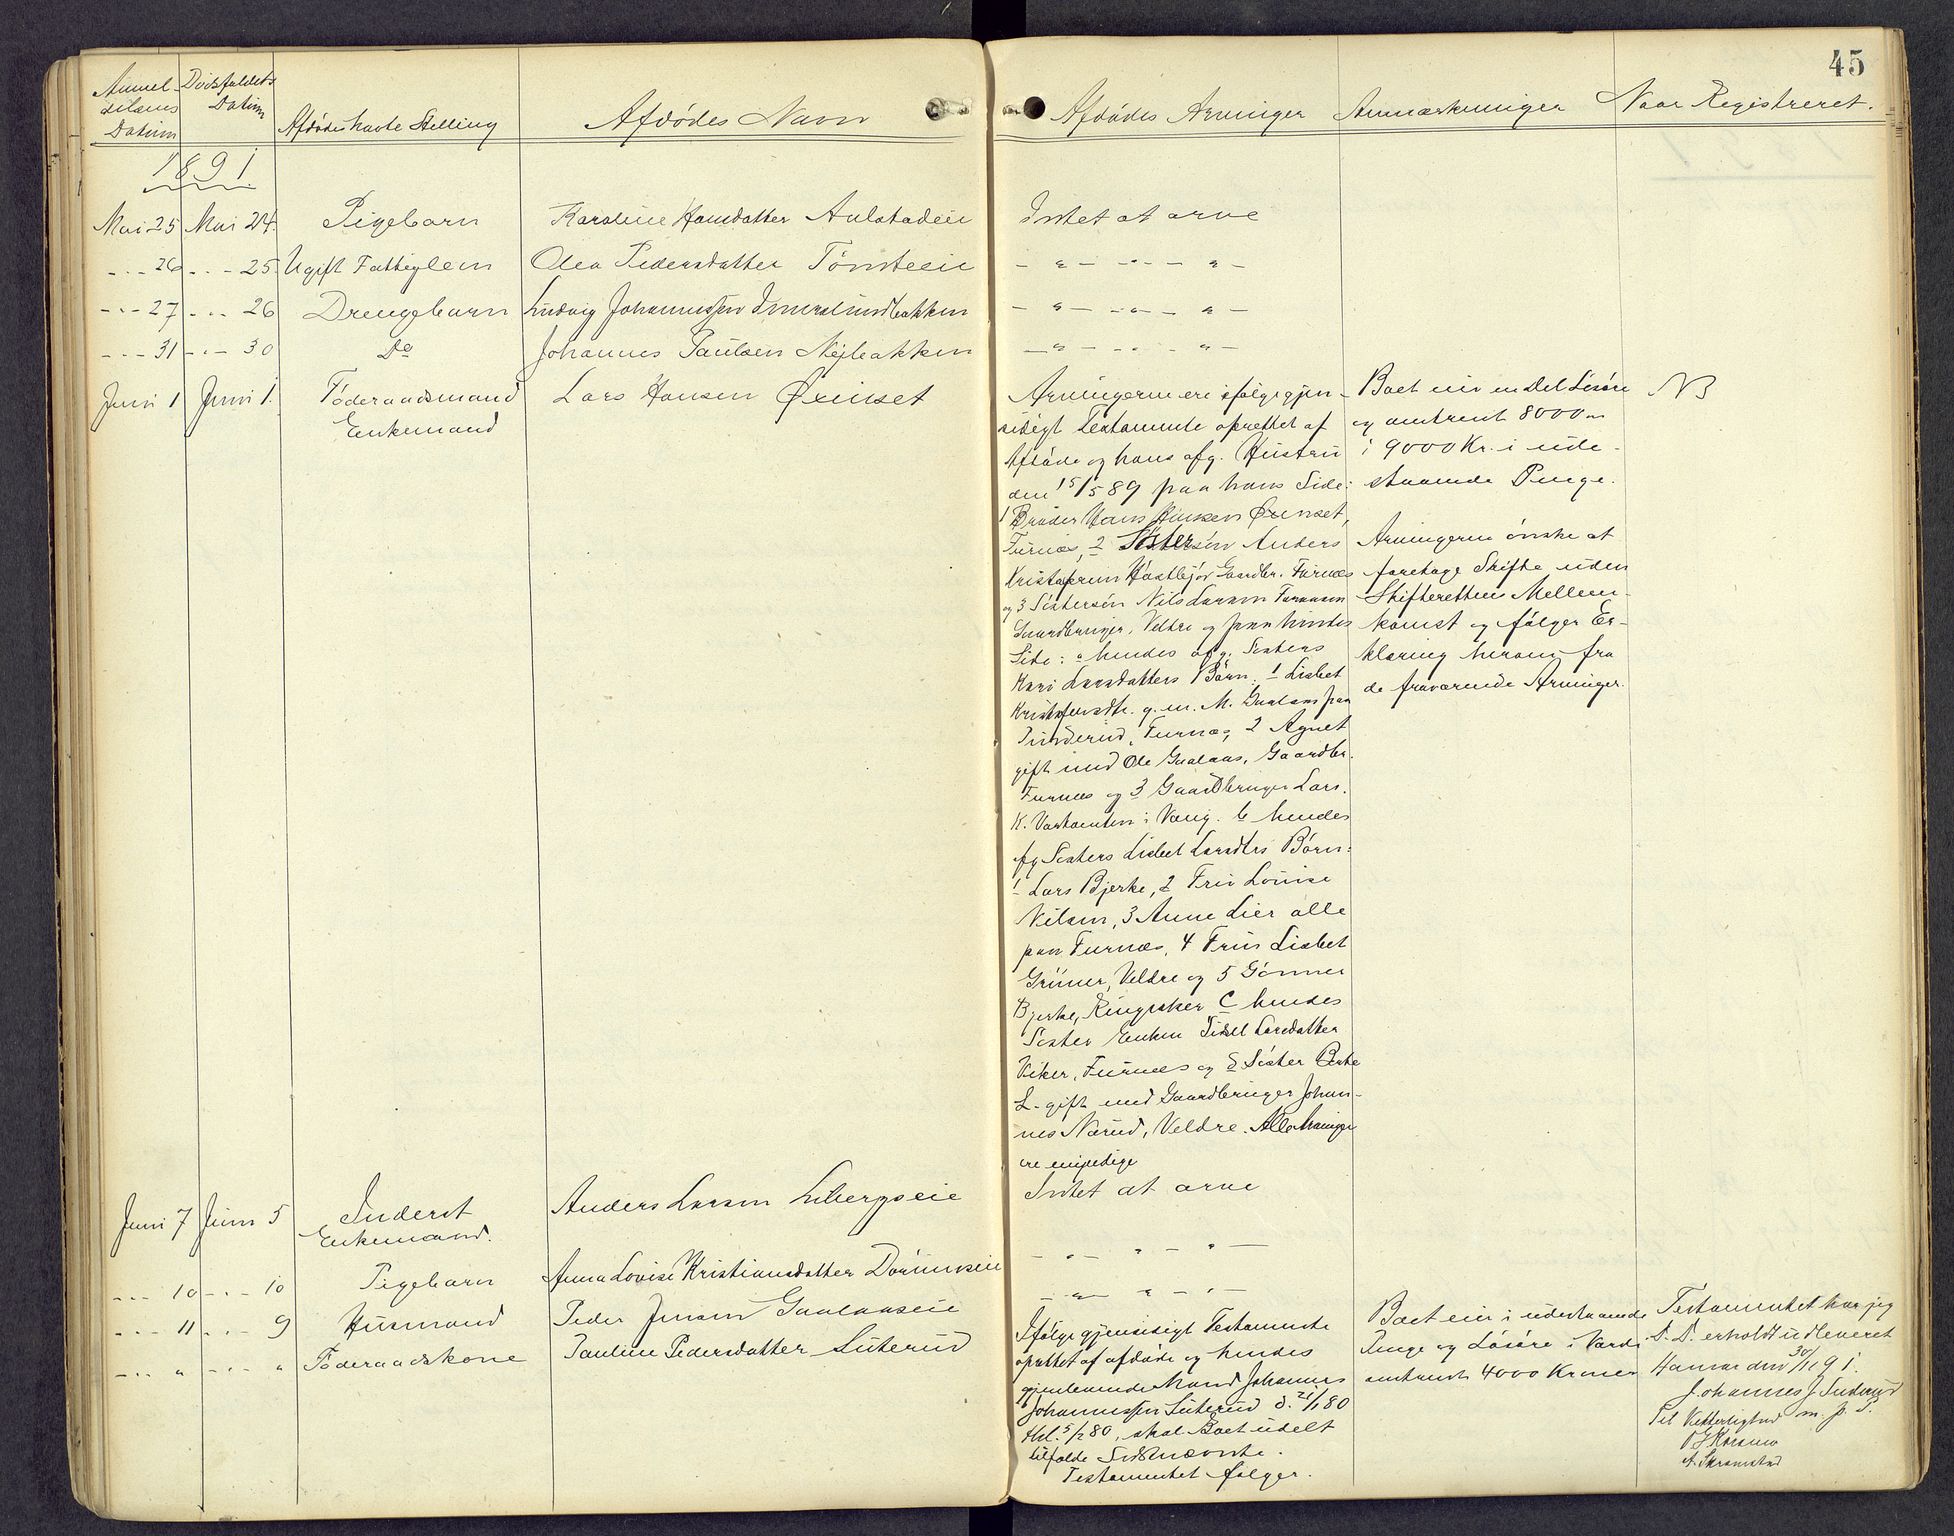 45
Anmel-
delsens
Datum
Dødsfaldets
Datum
Afdødes havte Stilling
Afdødes Navn
Afdødes Arvinger
Anmærkninger
Naar Registreret.
1891
Mai 25 Mai 24. Pigebarn Karoline Hansdatter Aulstadeie Intet at arve
- - 26 - - 25 Ugift Fattiglem Olea Pedersdatter Tømteeie - " - - " - - " -
- - 27 - - 26 Drengebarn Ludvig Johannessen Imerslundbakken - " - - " - - " -
- - 31 - - 30 Do Johannes Paulsen Nejbakken - " - - " - - " -
Juni 1 Juni 1. Føderaadsmand Lars Hansen Øxenset
Enkemand
Arvingerne ere ifølge gjen-
sidigt Testamente oprettet af
Afdøde og hans afg. Hustru
den 15/5 89 paa hans Side:
1 Broder Hans Hansen Øxenset,
Furnæs, 2 Søstersøn Anders
Kristofersen Gaardbr. Furnæs
og 3 Søstersøn Nils Larsen
Gaardbruger, Veldre og paa hendes
Side: a hendes afg. Søsters
Kari Larsdatters Børn: 1 Lisbet
Kristofersdtr. g. m. M. Gaalaas paa
Furnæs, 2 Agnet
gift med Ole Gaalaas, Gaardbr.
Furnæs og 3 Gaardbruger Lars
K. i Vang. b hendes
afg Søsters Lisbet Larsdtrs Børn:
1 Lars Bjerke, 2 Fru Louise
3 Anne Lier alle
paa Furnæs, 4 Fru Lisbet
Grimer, Veldre og 5 Gønner
Bjerke, Ringsaker C hendes
Søster Enken Sidsel Larsdatter
Viker, Furnæs og D Søster Berte
L. gift med Gaardbruger Johan-
nes Nærud, Veldre. Alle Arvinger
ere myndige
Boet eier en Del Løsøre
og omtrent 8000 a
i 9000 Kr. i ude-
staaende Penge.
Arvingerne ønske at
foretage Skifte uden
Skifterettens Mellem-
komst og følger Er-
klæring herom fra
de fraværende Arvinger.
NB
Juni 7 Juni 5 Inderst Anders Larsen Libergseie Intet at arve
Enkemand.
- - 10 - - 10 Pigebarn Anna Lovise Kristiansdatter - " - " -
- - 11 - - 9 Husmand Peder Jensen Gaalaaseie - " - " - " -
- - " - - " Føderaadskone Pauline Pedersdatter Suterud
Ifølge gjensidigt Testamente
oprettet af afdøde og hendes
gjenlevende Mand Johannes
Johannessen Suterud d. 21/1 80
thl. 5/2 80, skal Boet udelt
tilfalde Sidstnævnte.
Testamentet følger.
Boet eier i udestaaende
Penge og Løsøre i Værdi
omtrent 4000 Kroner
Testamentet har jeg
D. D. erholdt udleveret
Hamar den 30/11 91.
Johannes J Suterud
m. p. P.
Til Vitterlighed
A. Skramstad